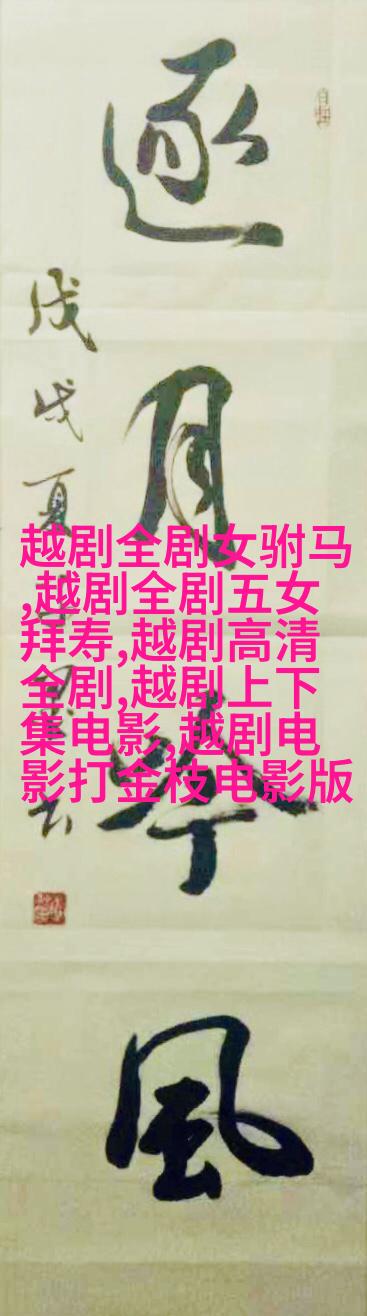 逐
月
風
戊戌夏
越剧全剧女驸马
,越剧全剧五女
拜寿,越剧高清
全剧,越剧上下
集电影,越剧电
影打金枝电影版